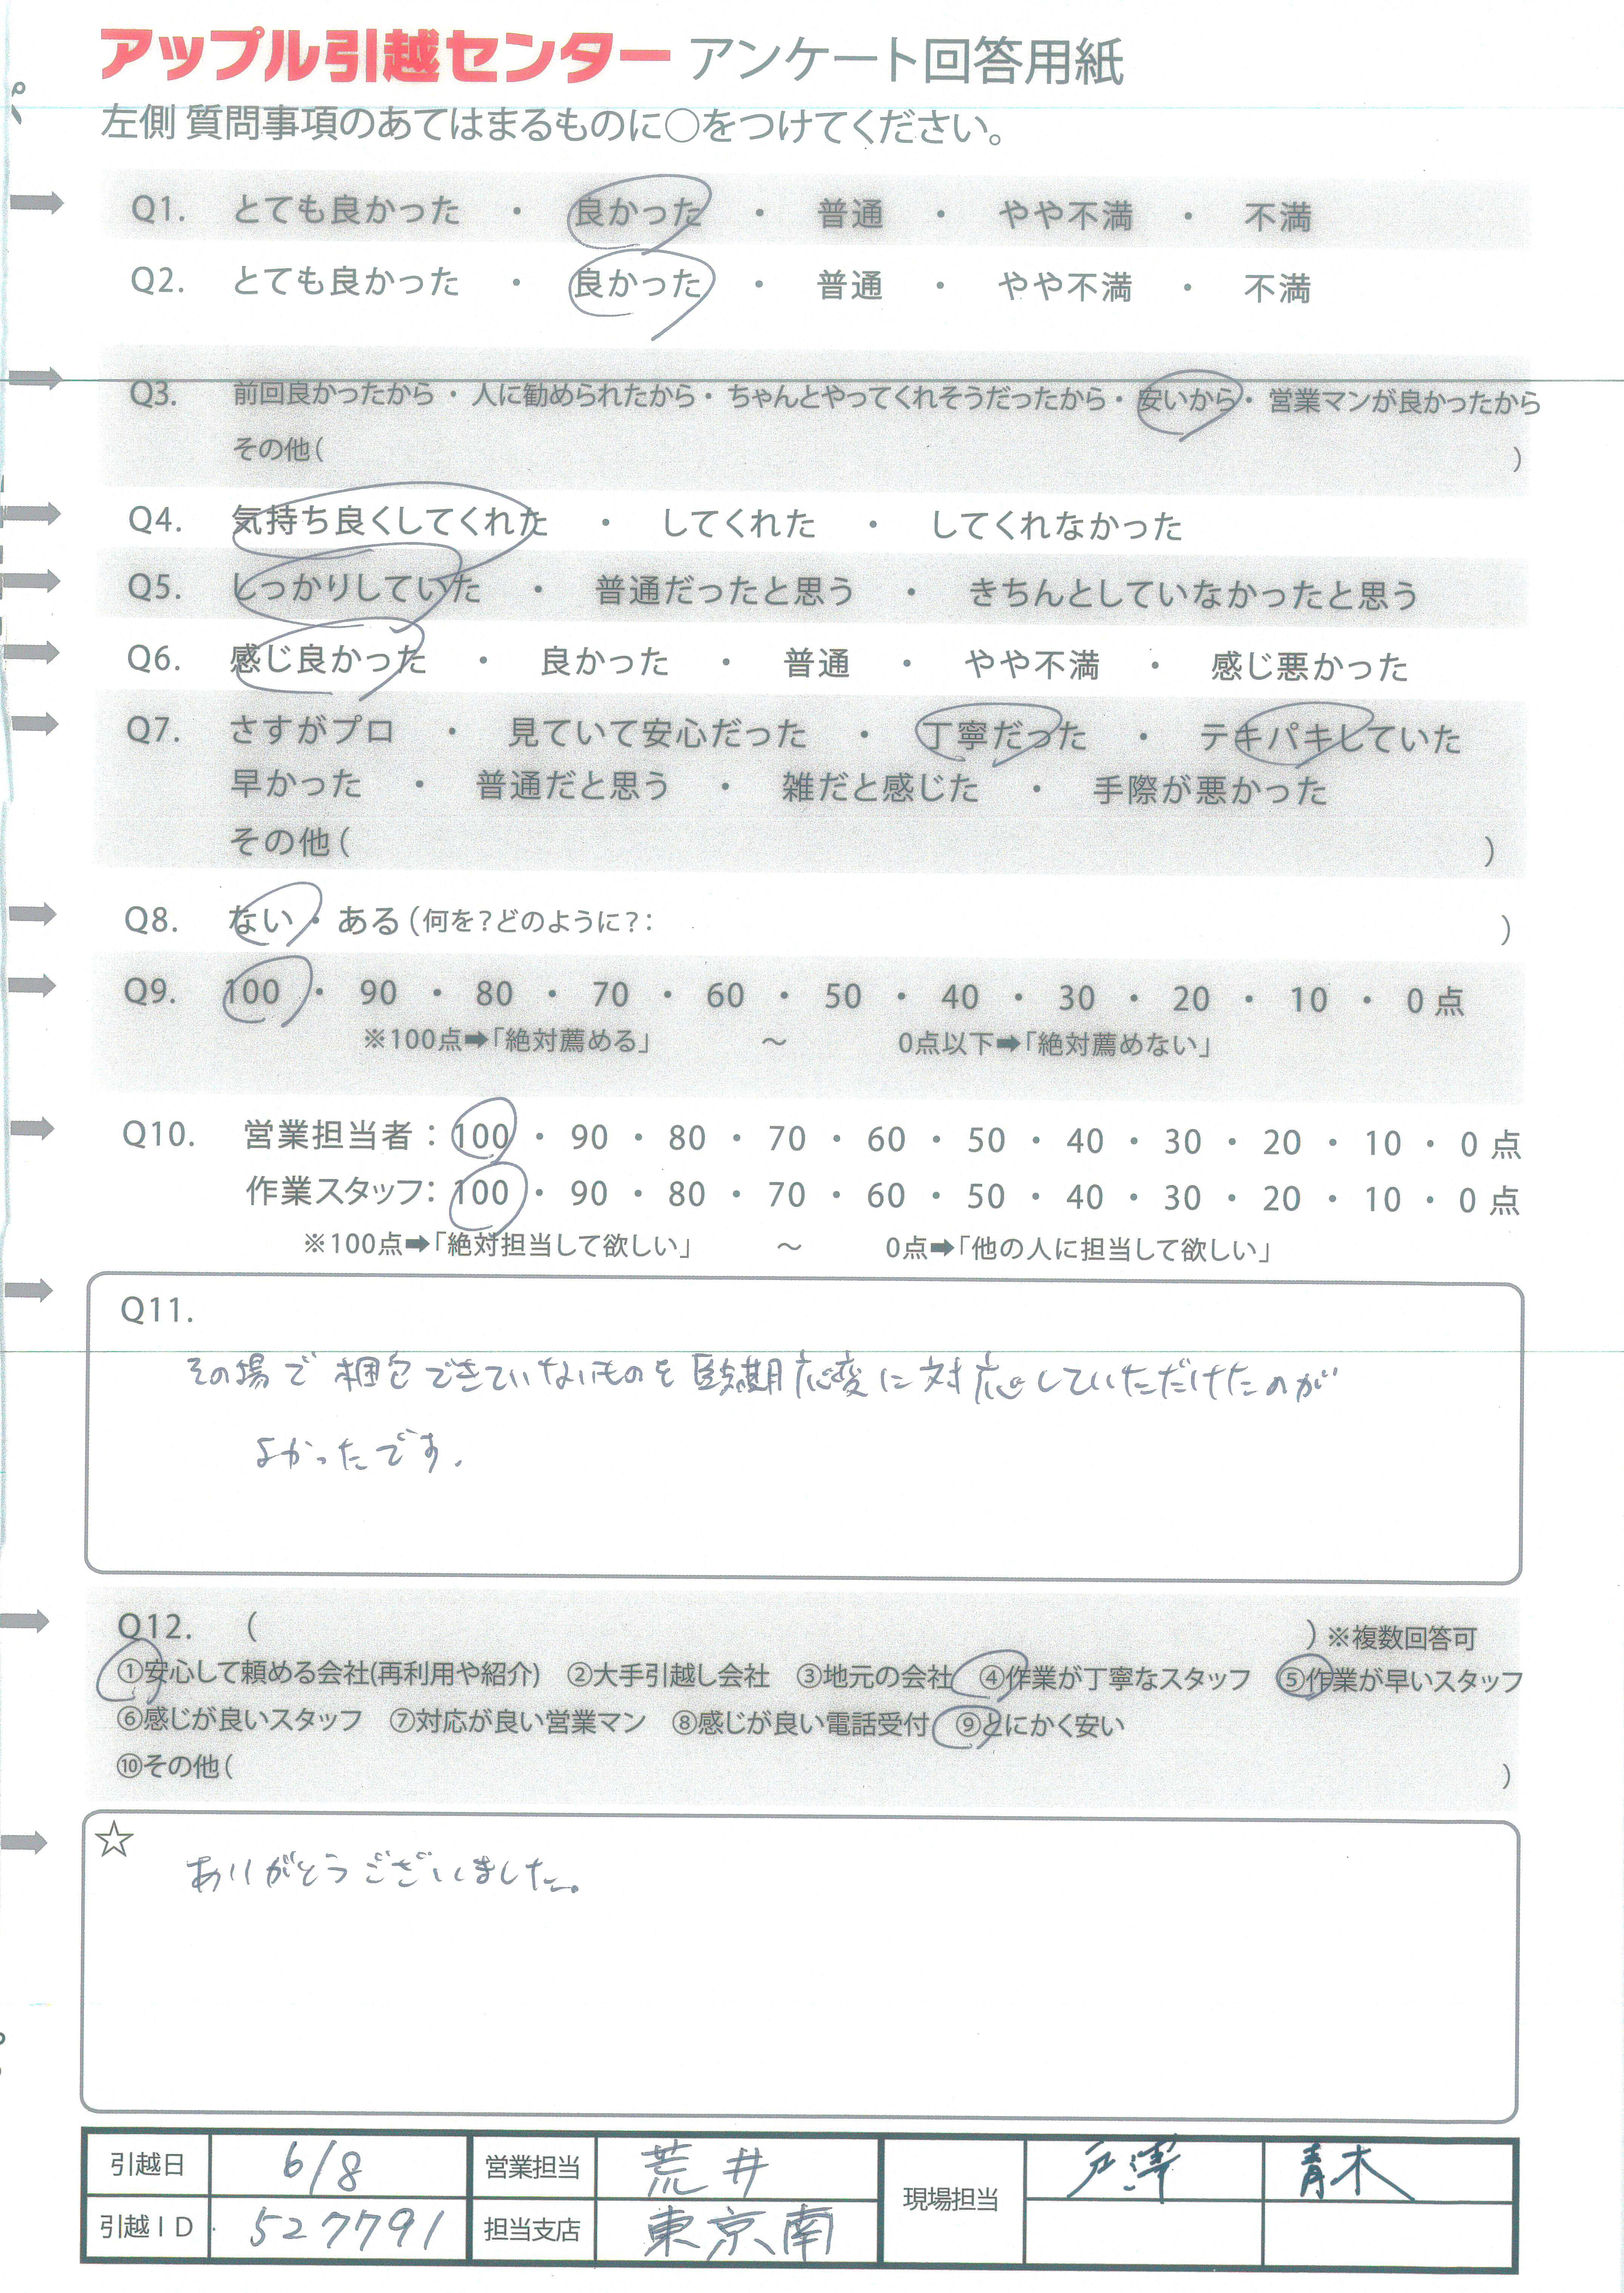 アップル引越センター アンケート回答用紙
左側 質問事項のあてはまるものに○をつけてください。
Q1. とても良かった ・ 良かった ・ 普通 ・ やや不満 ・ 不満
Q2. とても良かった ・ 良かった ・ 普通 ・ やや不満 ・ 不満
Q3. 前回良かったから ・ 人に勧められたから ・ ちゃんとやってくれそうだったから ・ 安いから ・ 営業マンが良かったから
その他( )
Q4. 気持ち良くしてくれた ・ してくれた ・ してくれなかった
Q5. しっかりしていた ・ 普通だったと思う ・ きちんとしていなかったと思う
Q6. 感じ良かった ・ 良かった ・ 普通 ・ やや不満 ・ 感じ悪かった
Q7. さすがプロ ・ 見ていて安心だった ・ 丁寧だった ・ テキパキしていた
早かった ・ 普通だと思う ・ 雑だと感じた ・ 手際が悪かった
その他( )
Q8. ない ・ ある(何を?どのように?: )
Q9. 100 ・ 90 ・ 80 ・ 70 ・ 60 ・ 50 ・ 40 ・ 30 ・ 20 ・ 10 ・ 0点
※100点➡「絶対薦める」 ～ 0点以下➡「絶対薦めない」
Q10. 営業担当者：100 ・ 90 ・ 80 ・ 70 ・ 60 ・ 50 ・ 40 ・ 30 ・ 20 ・ 10 ・ 0 点
作業スタッフ：100 ・ 90 ・ 80 ・ 70 ・ 60 ・ 50 ・ 40 ・ 30 ・ 20 ・ 10 ・ 0 点
※100点➡「絶対担当して欲しい」 ～ 0点➡「他の人に担当して欲しい」
Q11.
その場で梱包できていないものを 期応変に対応していただけたのが
よかったです.
Q12. ( ) ※複数回答可
①安心して頼める会社(再利用や紹介) ②大手引越し会社 ③地元の会社 ④作業が丁寧なスタッフ ⑤作業が早いスタッフ
⑥感じが良いスタッフ ⑦対応が良い営業マン ⑧感じが良い電話受付 ⑨とにかく安い
⑩その他( )
☆
ありがとうございました。
引越日 6/8 営業担当 荒井 現場担当 戸澤 青木
引越ID 527791 担当支店 東京南